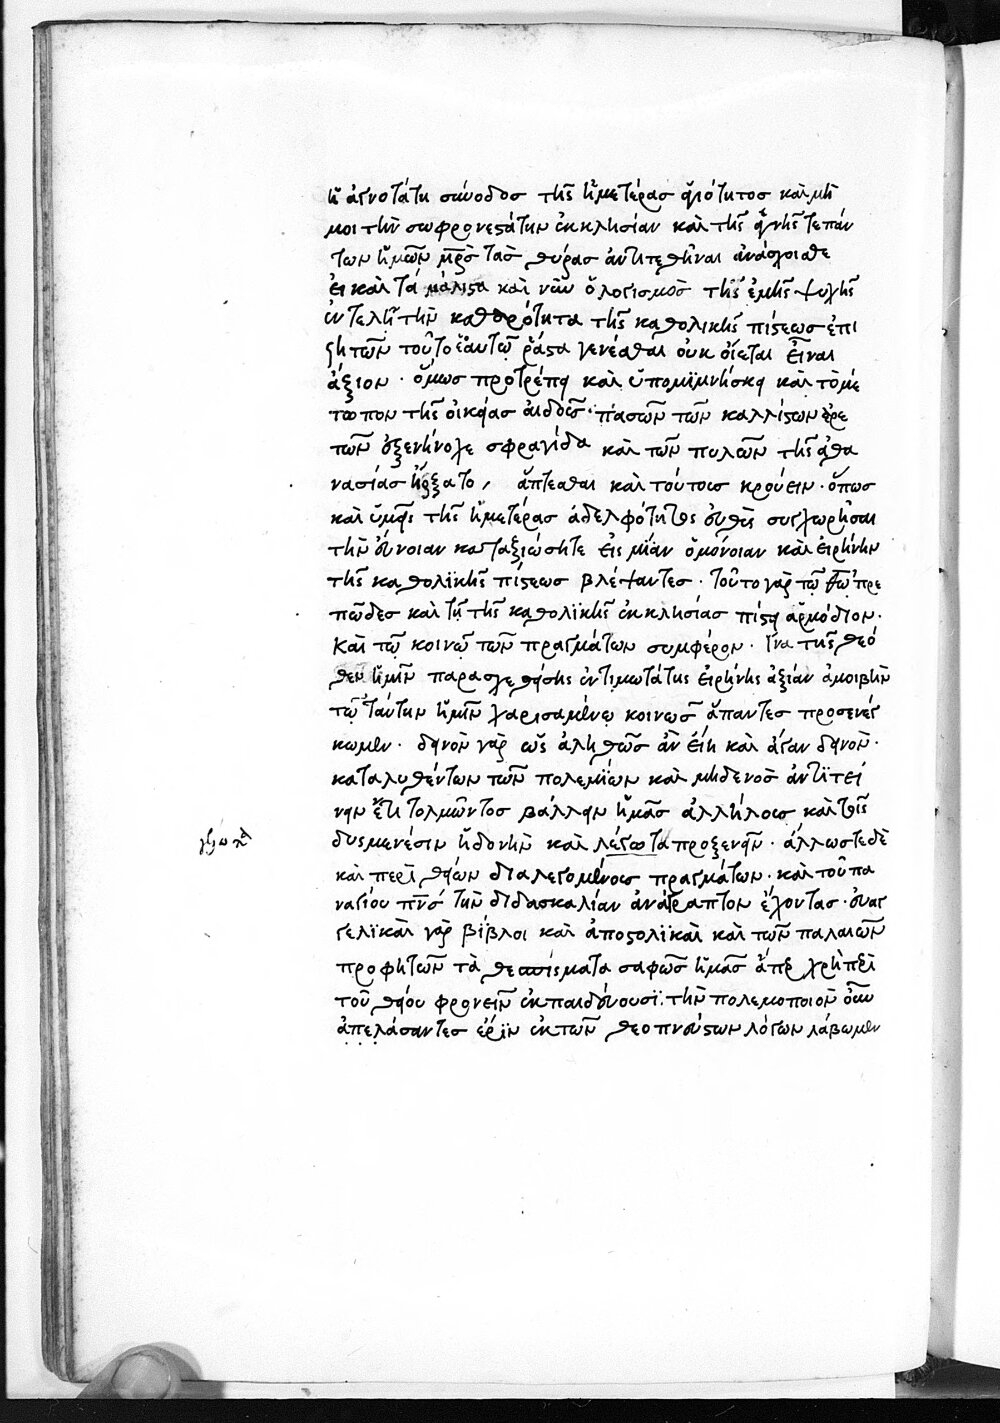 ἡ ἁγνοτάτη σύνοδος τῆς ἡμετέρας φιλότητος καὶ μή
μοι τὴν σωφρονεστάτην ἐκκλησίαν καὶ τῆς
των ἡμῶν πρὸς τὰς θύρας ἀντιτεθῆναι ἀνάσχοισθε
εἰ καὶ τὰ μάλιστα καὶ νῦν ὁ λογισμὸς τῆς ἐμῆς ψυχῆς
ἐντελῆ τὴν καθαρότητα τῆς καθολικῆς πίστεως ἐπι
ζητῶν τοῦτο ἑαυτῷ ῥᾷστα γενέσθαι οὐκ οἴεται εἶναι
ἄξιον · ὅμως προτρέπει καὶ ὑπομϊμνήσκει καὶ τὸ μέ
τωπον τῆς οἰκείας αἰδοῦς · πασῶν τῶν καλλίστων ἀρε
τῶν ἐξενήνοχε σφραγίδα καὶ τῶν πυλῶν τῆς ἀθα
νασίας ἤρξατο, ἅπτεσθαι καὶ τούτοις κρούειν · ὅπως
καὶ ὑμεῖς τῆς ἡμετέρας ἀδελφότητος εὐθὺς συγχωρῆσαι
τὴν εὔνοιαν καταξιώσητε εἰς μίαν ὁμόνοιαν καὶ εἰρήνην
τῆς καθολϊκῆς πίστεως βλέψαντες · τοῦτο γὰρ τῷ θῶ πρε
πῶδες καὶ τῇ τῆς καθολϊκῆς ἐκκλησίας πίστει ἁρμόδιον ·
καὶ τῷ κοινῷ τῶν πραγμάτων συμφέρον · ἵνα τῆς θεό
θεν ἡμῖν παρασχεθείσης ἐντιμωτάτης εἰρήνης ἀξίαν ἀμοιβὴν
τῷ ταύτην ἡμῖν χαρισαμένῳ κοινῶς ἅπαντες προσενέγ
κωμεν · δεινὸν γὰρ ὡς ἀληθῶς ἂν εἴη καὶ ἄγαν δεινὸν ·
καταλυθέντων τῶν πολεμίων καὶ μηδενὸς ἀντϊτεί
νειν ἔτι τολμῶντος βάλλειν ἡμᾶς ἀλλήλοις καὶ τοῖς
δυσμενέσιν ἡδονὴν καὶ λέγωτα προξενεῖν · ἄλλως τε δὲ
καὶ περὶ θείων διαλεγομένοις πραγμάτων · καὶ τοῦ πα
ναγίου πνς τὴν διδασκαλίαν ἀνάγραπτον ἔχοντας · εὐαγ
γελϊκαὶ γὰρ βίβλοι καὶ ἀποστολϊκαὶ καὶ τῶν παλαιῶν
προφητῶν τὰ θεσπίσματα σαφῶς ἡμᾶς ἅπερ χρὴ περὶ
τοῦ θείου φρονεῖν ἐκπαιδεύουσϊ · τὴν πολεμοποιὸν οὖν
ἀπελάσαντες ἔρϊν ἐκ τῶν θεοπνεύστων λόγων λάβωμεν